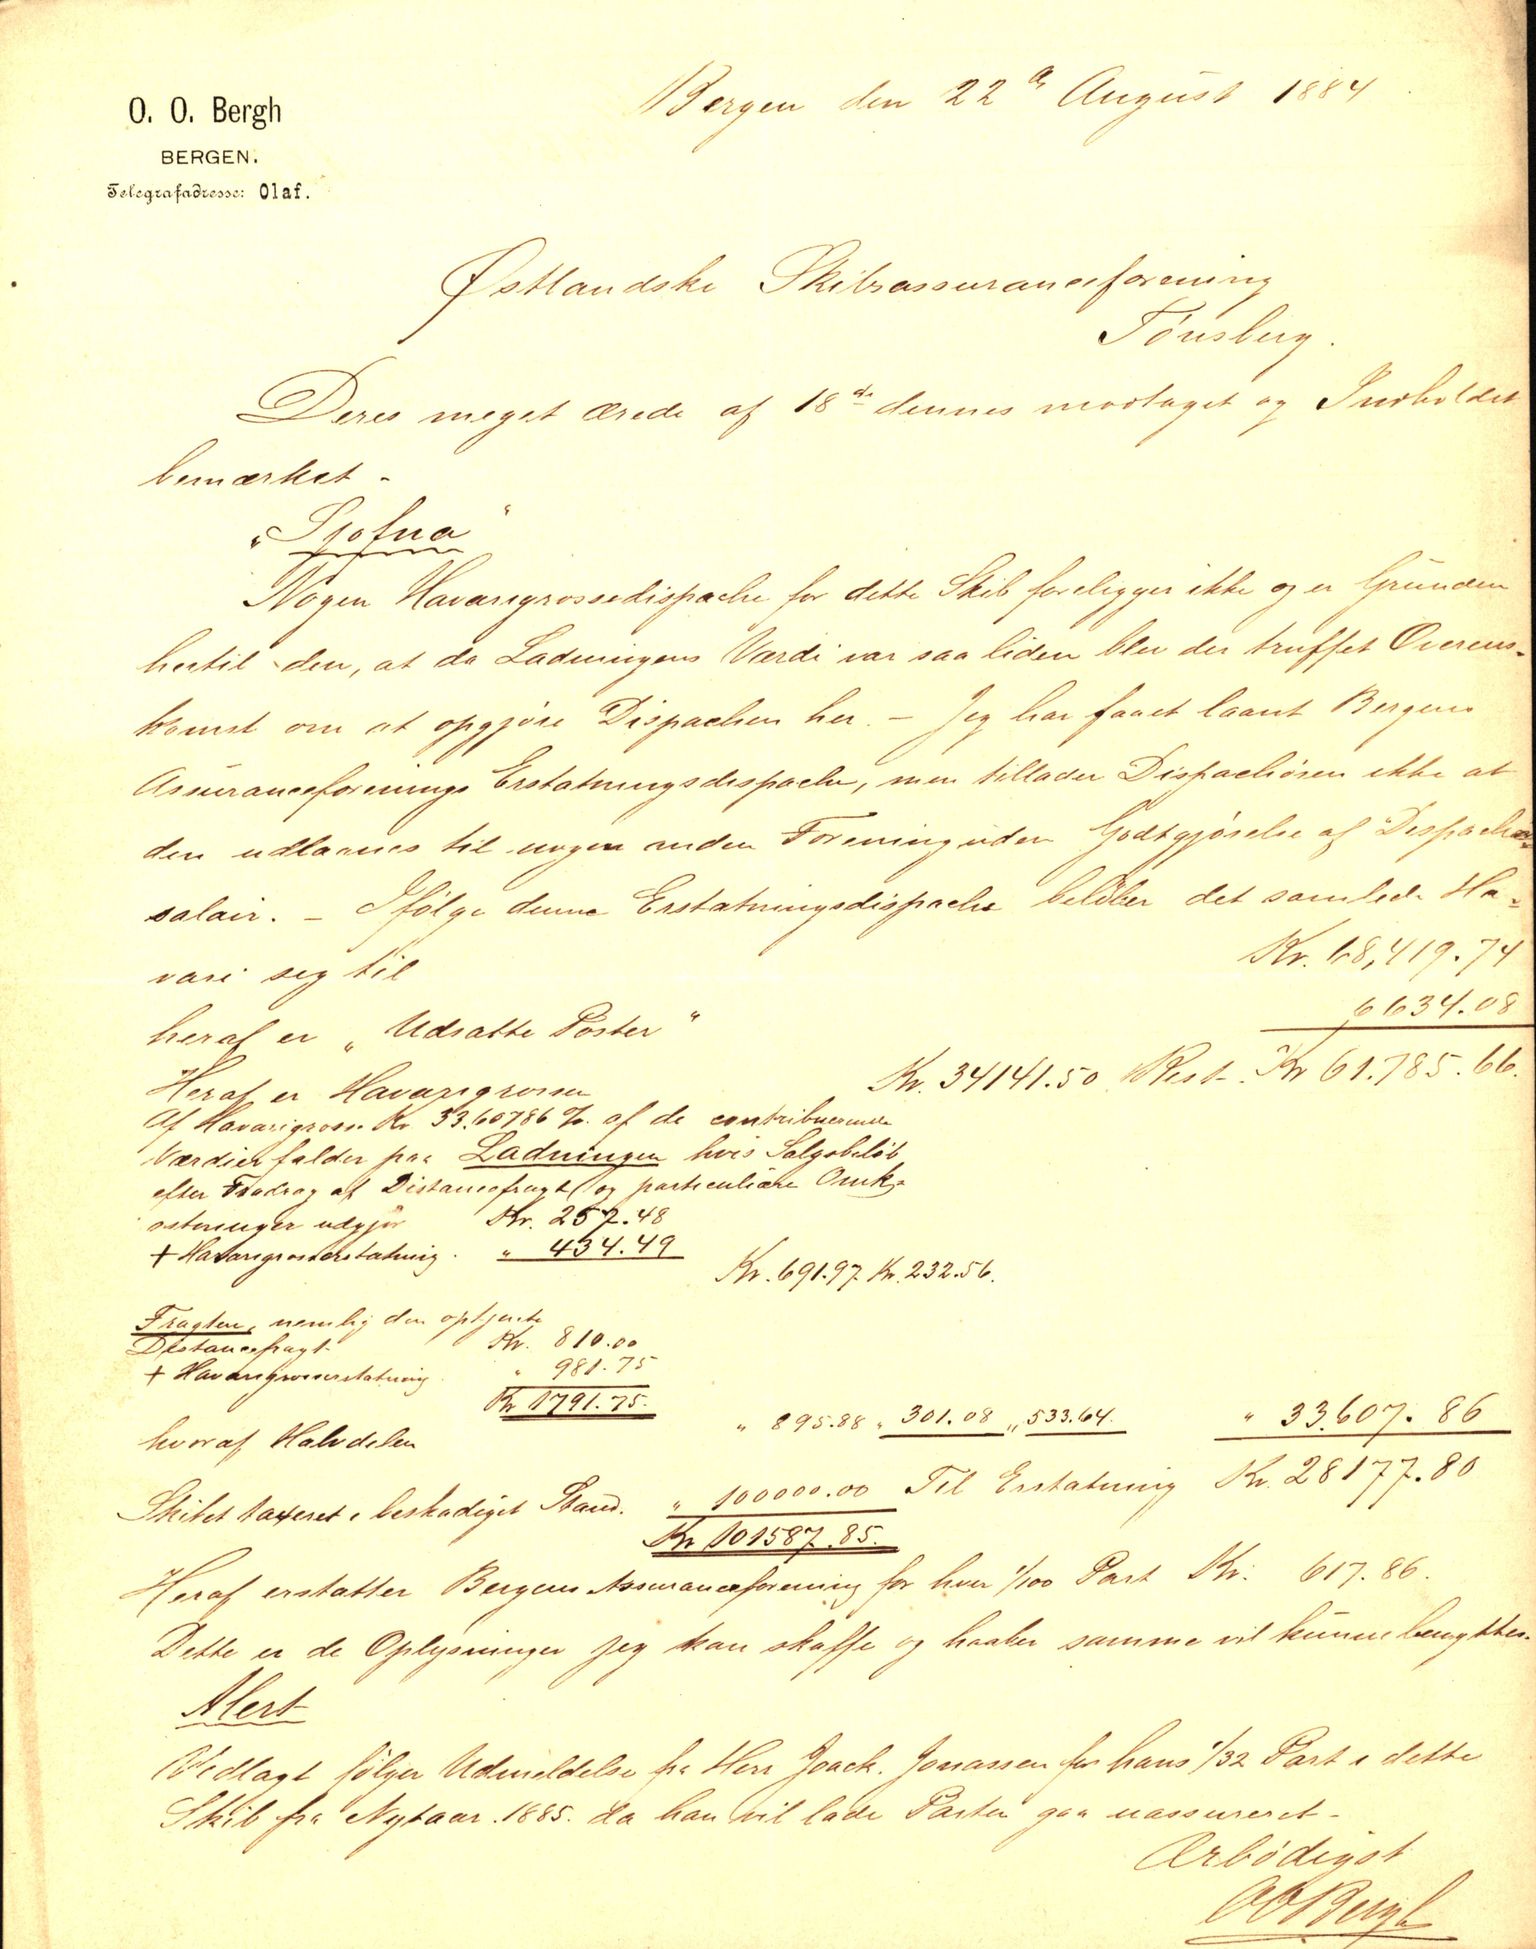 O. O. Bergh
BERGEN.
Telegrafadresse: Olaf.
Bergen den 22de August 1884
Østlandske Skibsassuranceforening
Tønsberg.
Deres meget ærede af 18de dennes modtaget og Indholdet
bemærket -
„Sjofna“
Nogen Havarigrossedispache for dette Skib foreligger ikke og er Grunden
hertil den, at da Ladningens Værdi var saa liden blev der truffet Overens-
komst om at opgjøre Dispachen her. - Jeg har faaet laant Bergens
Assuranceforenings Erstatningsdispache, men tillader Dispachøren ikke at
den udlaanes til nogen anden Forening uden Godtgjørelse af Dispache-
salair. - Ifølge denne Erstatningsdispache beløber det samlede Ha-
vari sig til Kr. 68,419.74
heraf er „Udsatte Poster“ 6634.08
Heraf er Havarigrosse Kr. 34141.50 Rest Kr 61.785.66.
Af Havarigrosse Kr 33.60786 %. af de contribuerende
Værdier falder paa Ladningen hvis Salgsbeløb
efter Fradrag af Distancefragt og particulære Omk-
ostninger udgjør Kr. 257.48
+ Havarigrosserstatning. „ 434.49
Kr. 691.97 Kr. 232.56.
Fragten, nemlig den optjente
Distancefragt Kr. 810.00
+ Havarigrosserstatning „ 981.75
Kr 1791.75.
hvoraf Halvdelen „ 895.88 „ 301.08 „ 533.64. „ 33.607.86
Skibet taxeret i beskadiget Stand. „ 100000.00 Til Erstatning Kr. 28177.80
Kr 101587.85.
Heraf erstatter Bergens Assuranceforening for hver 1/100 Part Kr. 617.86.
Dette er de Oplysninger jeg kan skaffe og haaber samme vil kunne benyttes.
Alert
Vedlagt følger Udmeldelse fra Herr Joach. Jonassen for hans 1/32 Part i dette
Skib fra Nytaar. 1885. da han vil lade Parten gaa uassureret -
Ærbødigst
OOBergh